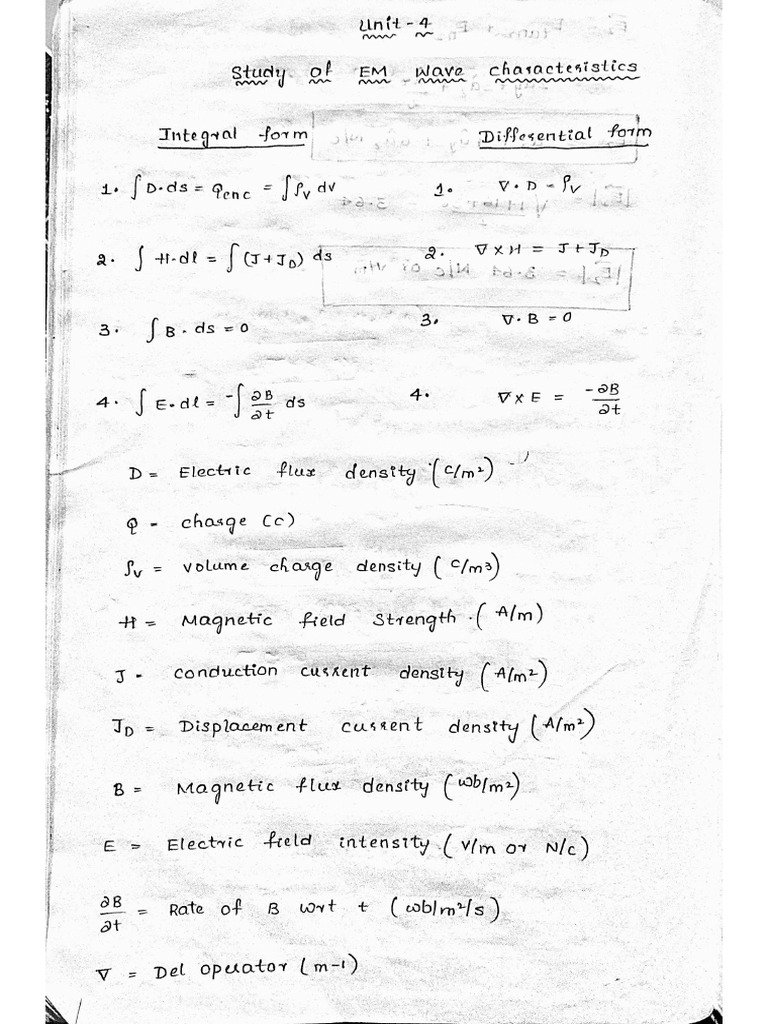 Unit-4
Study of EM wave characteristics
Integral form Differential form
1. ∫D.ds = Qenc = ∫ρv dv 1. ∇.D = ρv
2. ∫H.dl = ∫(J+JD) ds 2. ∇xH = J+JD
3. ∫B.ds=0 3. ∇.B=0
4. ∫E.dl = -∫∂B/∂t ds 4. ∇xE = -∂B/∂t
D = Electric flux density (c/m²)
Q - charge (c)
ρv = volume charge density (c/m3)
H = Magnetic field strength. (A/m)
J - conduction current density (A/m²)
JD = Displacement current density (A/m²)
B = Magnetic flux density (wb/m²)
E = Electric field intensity (V/m or N/c)
∂B/∂t = Rate of B wrt t (wb/m²/s)
∇ = Del operator (m-1)